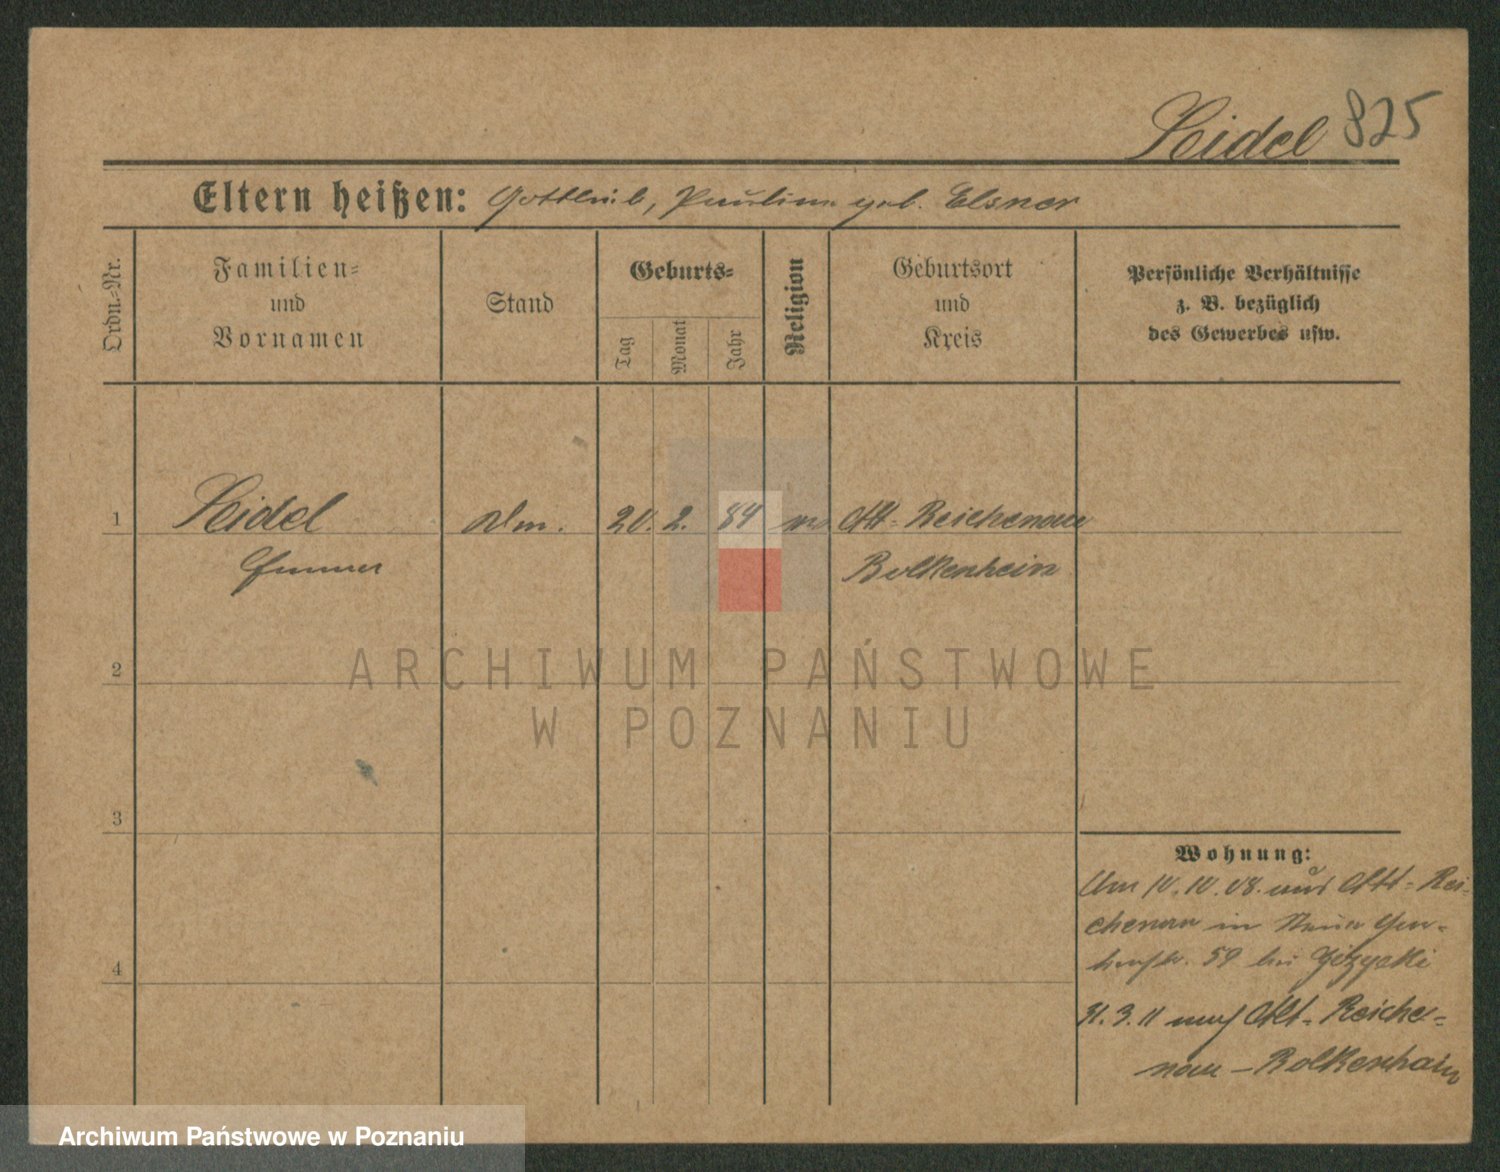 Seidel 825
Eltern heißen: Gottlieb, Pauline geb. Elsner
Ordn.-Nr.
Familien-
und
Vornamen
Stand
Geburts-
Tag
Monat
Jahr
Religion
Geburtsort
und
Kreis
Persönliche Verhältnisse
z. B. bezüglich
des Gewerbes usw.
1 Seidel 20. 2. 84 Alt-Reichenau
Bolkenhein
2
ARCHIWUM PAŃSTWOWE
W POZNANIU
3
Wohnung:
Am 10.10.08. aus Alt-Rei-
chenau in
59 bei Gizycki
4
31.3.11 nach Alt-Reiche-
nau - Bolkenhain
Archiwum Państwowe w Poznaniu